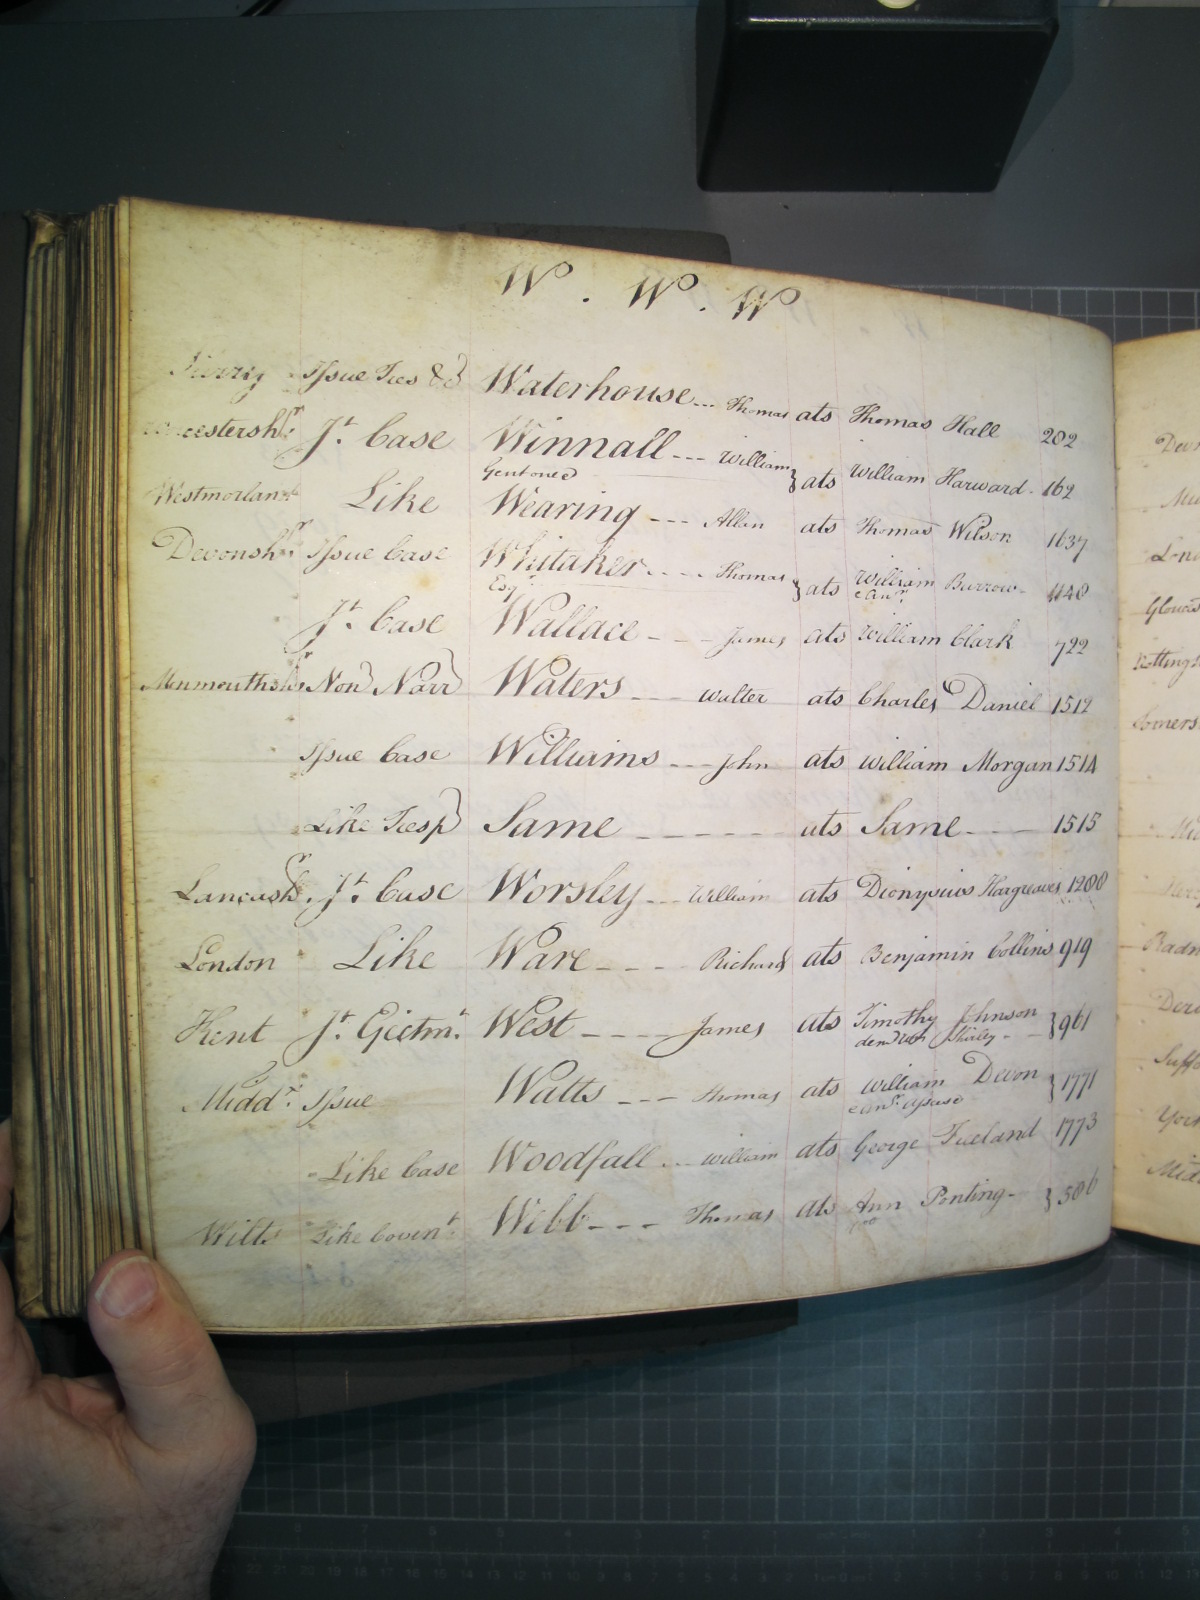 W . W . W
Surry Issue Tres &c Waterhouse --- Thomas ats Thomas Hall 202
Worcestershr: Jt. Case Winnall --- William } ats William Harward - 162
Gent one &c
Westmorland Like Wearing --- Allan ats Thomas Wilson 1637
Devonshr: Issue Case Whitaker --- Thomas } ats William Burrow - 1140
Esqr & anr.
Jt. Case Wallace --- James ats William Clark 722
Monmouthshr Non Narr Waters --- Walter ats Charles Daniel 1512
Issue Case Williams --- John ats William Morgan 1514
Like Tresp Same ------ ats Same --- 1515
Lancashr. Jt. Case Worsley --- William ats Dionysius Hargreaves 1200
London Like Ware --- Richard ats Benjamin Collins 919
Kent Jt. Ejectmt. West --- James ats Timothy Johnson } 961
dem Shirley --
Middx: Issue Watts --- Thomas ats William Devon } 1771
& anr.
Like Case Woodfall --- William ats George 1773
Wilts Like Covent. Webb --- Thomas ats Ann Ponting - } 586